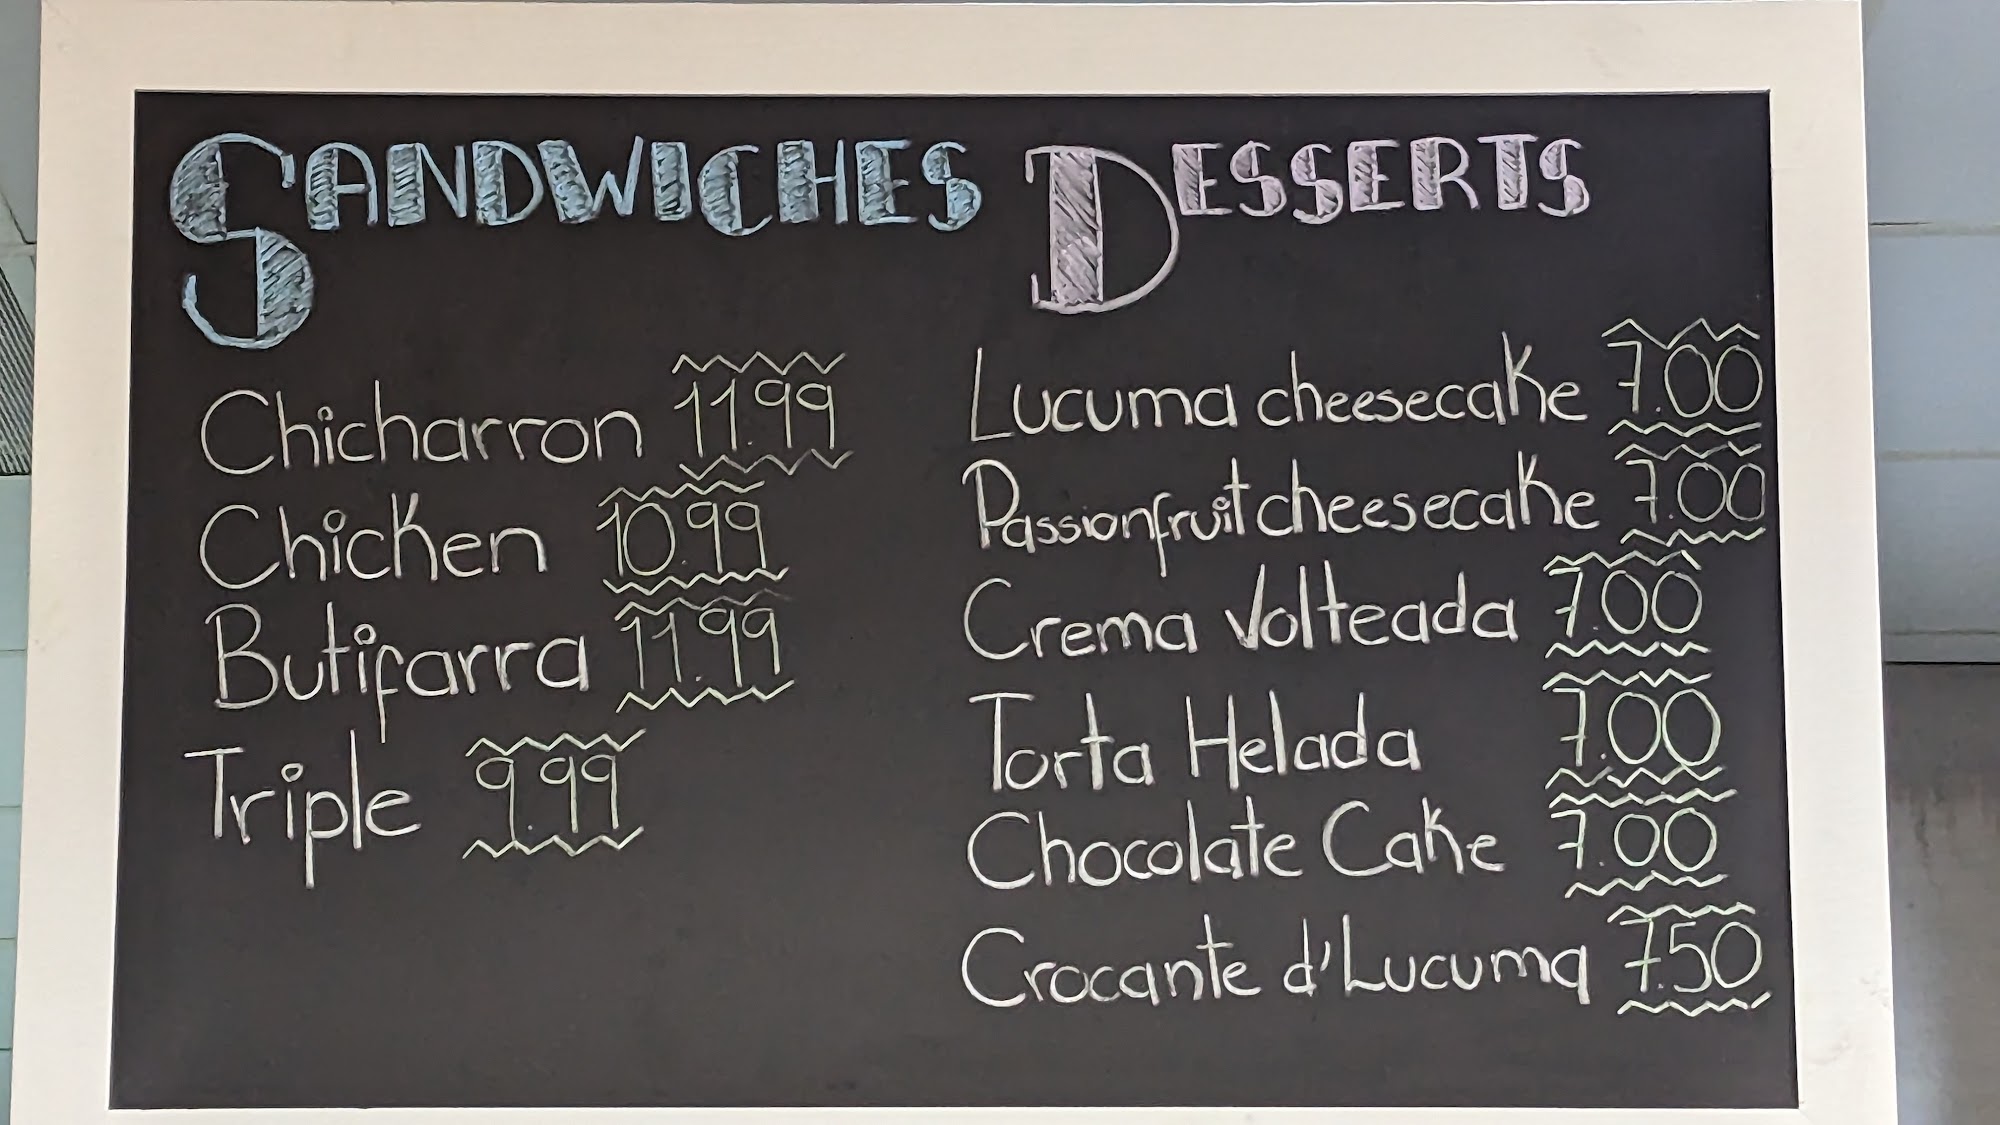 SANDWICHES
Chicharron 11.99
Chicken 10.99
Butifarra 11.99
Triple 9.99
DESSERTS
Lucuma cheesecake 7.00
Passionfruit cheesecake 7.00
Crema Volteada 7.00
Torta Helada 7.00
Chocolate Cake 7.00
Crocante d'Lucuma 7.50